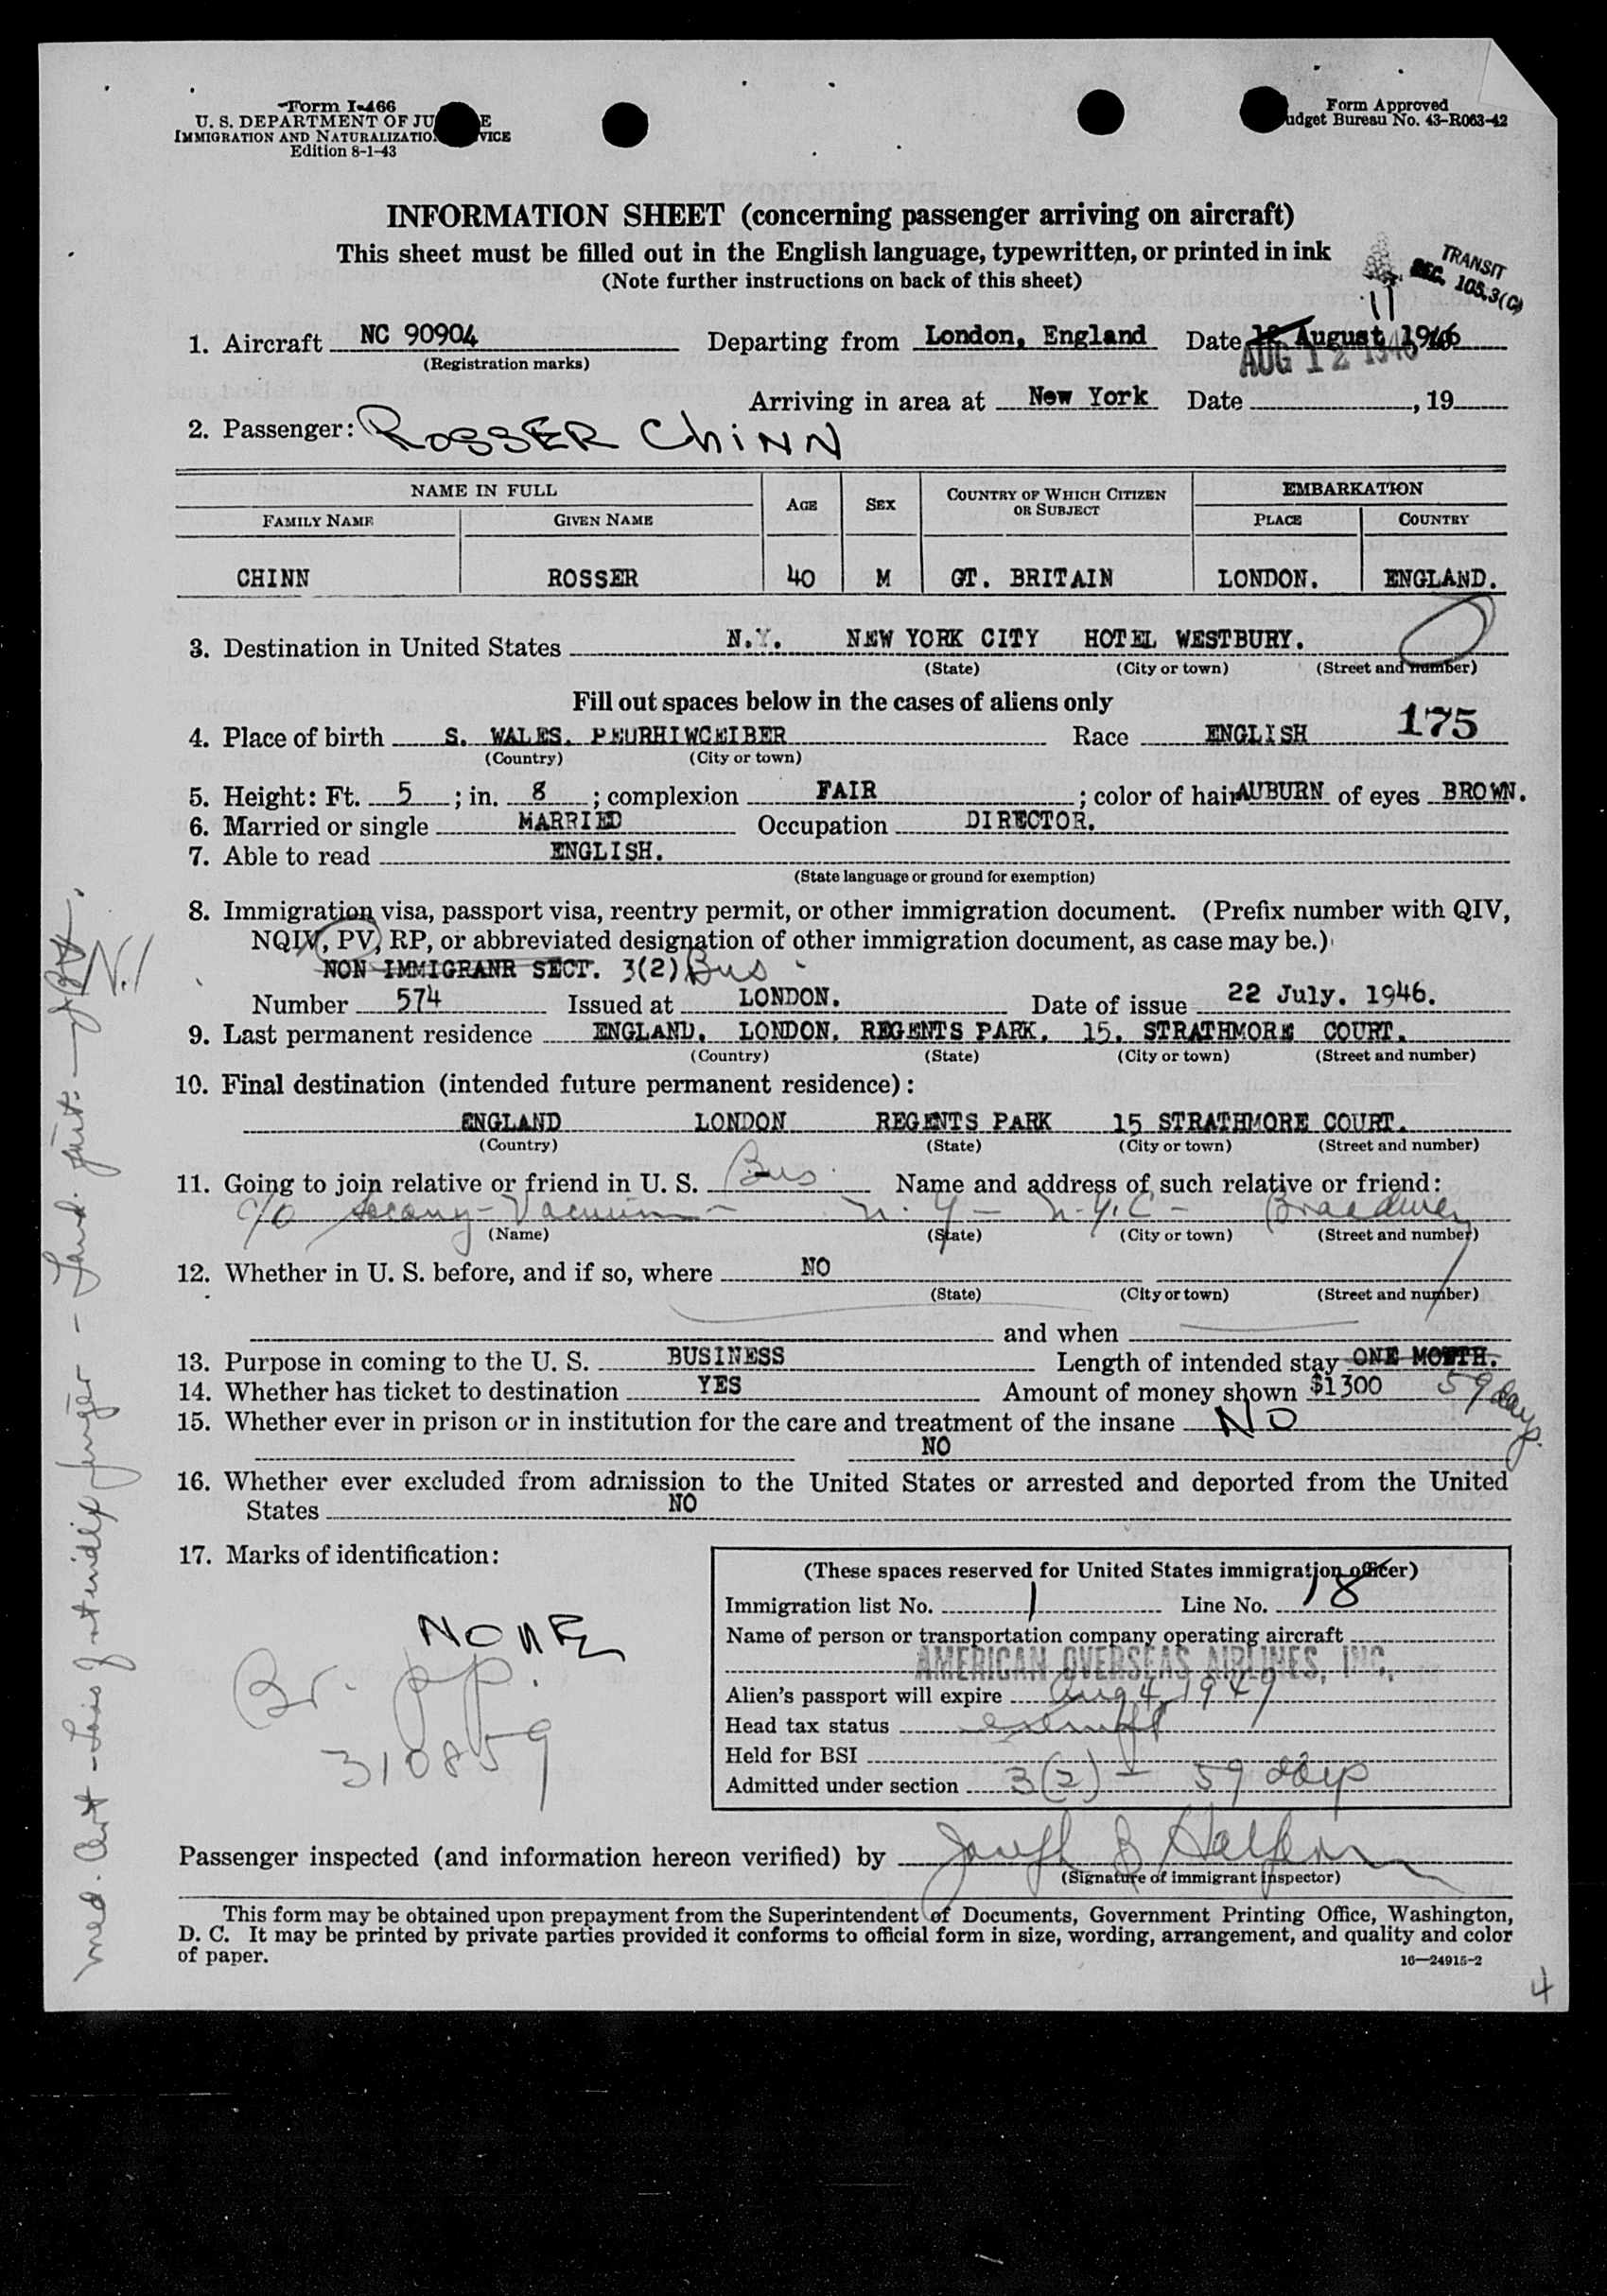 Form I-466
U. S. DEPARTMENT OF JU E
IMMIGRATION AND NATURALIZATIO VICE
Edition 8-1-43
Form Approved
udget Bureau No. 43-R063-42
INFORMATION SHEET (concerning passenger arriving on aircraft)
This sheet must be filled out in the English language, typewritten, or printed in ink
(Note further instructions on back of this sheet)
TRANSIT
SEC. 105.3(C)
11
1. Aircraft NC 90904 Departing from London, England Date 12 August, 1946
(Registration marks)
AUG 12 1946
Arriving in area at New York Date , 19
2. Passenger: ROSSER ChiNN
NAME IN FULL AGE SEX COUNTRY OF WHICH CITIZEN OR SUBJECT EMBARKATION
FAMILY NAME GIVEN NAME PLACE COUNTRY
CHINN ROSSER 40 M GT. BRITAIN LONDON. ENGLAND.
3. Destination in United States N.Y. NEW YORK CITY HOTEL WESTBURY.
(State) (City or town) (Street and number)
Fill out spaces below in the cases of aliens only
175
4. Place of birth S. WALES. PEURHIWCEIBER Race ENGLISH
(Country) (City or town)
5. Height: Ft. 5 ; in. 8 ; complexion FAIR ; color of hair AUBURN of eyes BROWN.
6. Married or single MARRIED Occupation DIRECTOR.
7. Able to read ENGLISH.
(State language or ground for exemption)
8. Immigration visa, passport visa, reentry permit, or other immigration document. (Prefix number with QIV,
NQIV, PV, RP, or abbreviated designation of other immigration document, as case may be.)
NON IMMIGRANR SECT. 3(2) Bus
Number 574 Issued at LONDON. Date of issue 22 July. 1946.
9. Last permanent residence ENGLAND. LONDON. REGENTS PARK. 15. STRATHMORE COURT.
(Country) (State) (City or town) (Street and number)
10. Final destination (intended future permanent residence):
ENGLAND LONDON REGENTS PARK 15 STRATHMORE COURT.
(Country) (State) (City or town) (Street and number)
11. Going to join relative or friend in U. S. Bus Name and address of such relative or friend:
c/o Socony-Vacuum - N.Y - N.Y.C - Broadway
(Name) (State) (City or town) (Street and number)
12. Whether in U. S. before, and if so, where NO
(State) (City or town) (Street and number)
and when
13. Purpose in coming to the U. S. BUSINESS Length of intended stay ONE MONTH.
14. Whether has ticket to destination YES Amount of money shown $1300 59 days
15. Whether ever in prison or in institution for the care and treatment of the insane NO
NO
16. Whether ever excluded from admission to the United States or arrested and deported from the United
States NO
17. Marks of identification:
NONE
Br. pp.
310859
(These spaces reserved for United States immigration officer)
Immigration list No. 1 Line No. 18
Name of person or transportation company operating aircraft
AMERICAN OVERSEAS AIRLINES, INC.
Alien's passport will expire Aug 4, 1947
Head tax status exempt
Held for BSI
Admitted under section 3(2) - 59 days
Passenger inspected (and information hereon verified) by Joseph B Halpern
(Signature of immigrant inspector)
This form may be obtained upon prepayment from the Superintendent of Documents, Government Printing Office, Washington,
D. C. It may be printed by private parties provided it conforms to official form in size, wording, arrangement, and quality and color
of paper.
16—24915-2
4
med. Cert - Loss of
finger -